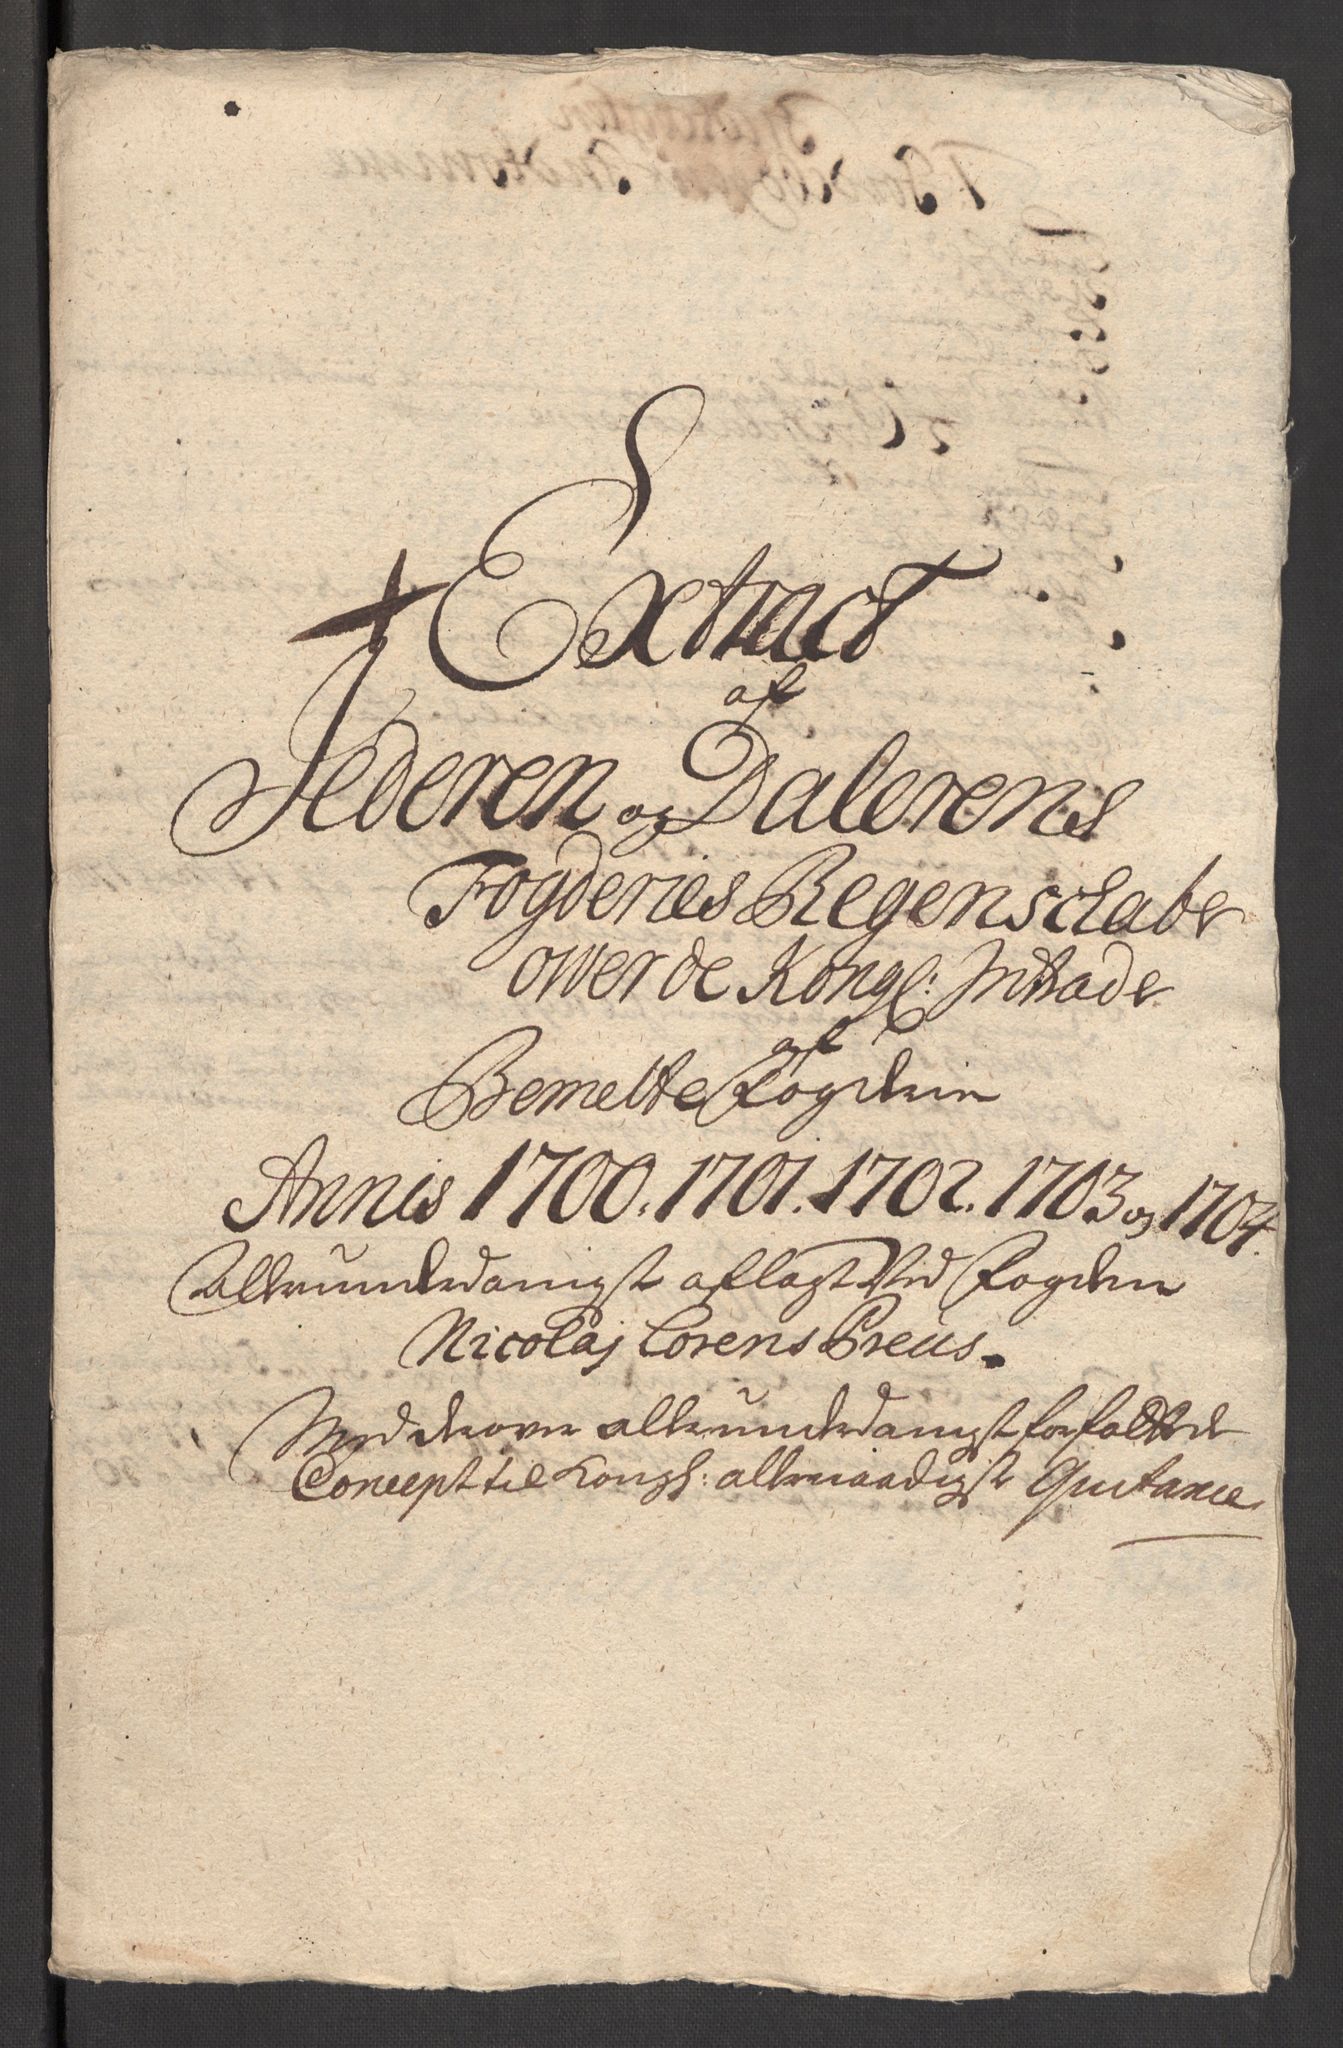 Extract
af
Jederen og Dalerens
Fogderies Regenschaber
over de Kongl: Intrader
af
Bemelte Fogderie
Annis 1700. 1701. 1702. 1703 og 1704.
Allerunderdanigst aflagt Ved Fogden
Nicolaj Lorens Preus.
Med derover allerunderdanigst forfattede
Concept til Kongl: allernaadigste Quitance